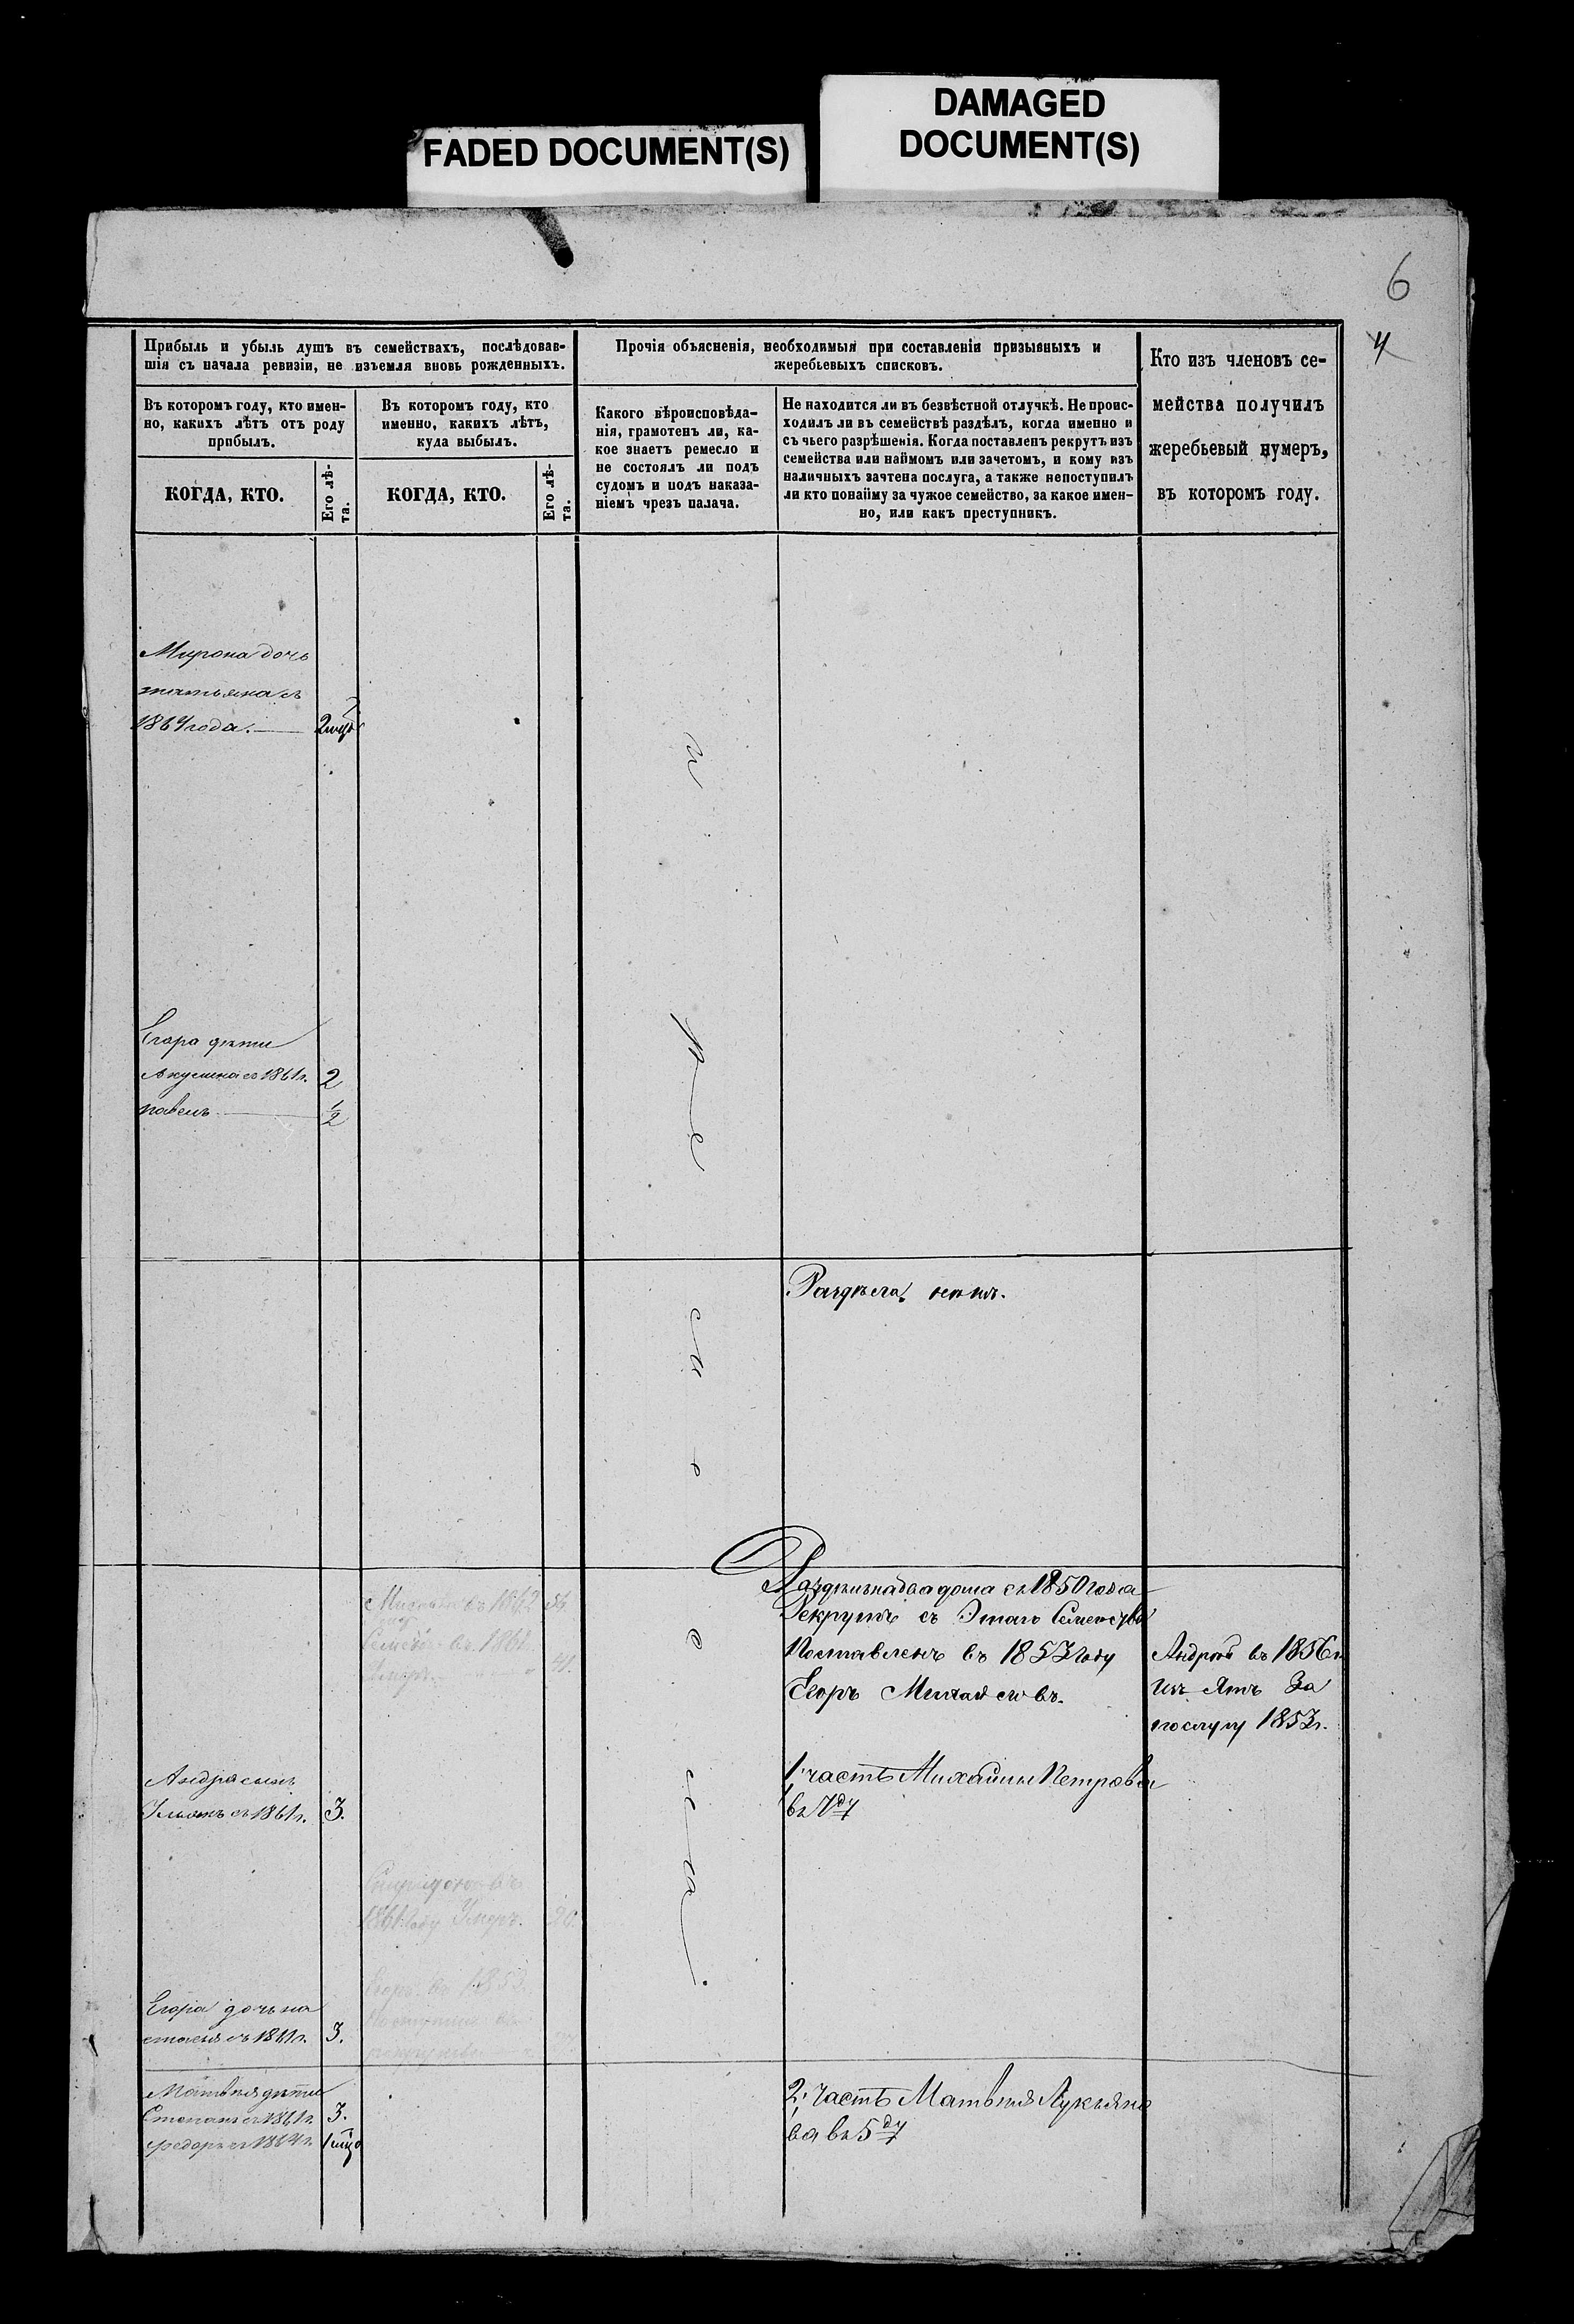 FADED DOCUMENT(S)
DAMAGED
DOCUMENT(S)
6
4
Прибыль и убыль душъ въ семействахъ, послѣдовав-
шія съ начала ревизіи, не изъемля вновь рожденныхъ.
Въ которомъ году, кто имен-
но, какихъ лѣтъ отъ роду
прибылъ.
КОГДА, КТО.
Его лѣ-
та.
Въ которомъ году, кто
именно, какихъ лѣтъ,
куда выбылъ.
КОГДА, КТО.
Его лѣ-
та.
Прочія объясненія, необходимыя при составленіи призывныхъ и
жеребьевыхъ списковъ.
Какого вѣроисповѣда-
нія, грамотенъ ли, ка-
кое знаетъ ремесло и
не состоялъ ли подъ
судомъ и подъ наказа-
ніемъ чрезъ палача.
Не находится ли въ безвѣстной отлучкѣ. Не проис-
ходилъ ли въ семействѣ раздѣлъ, когда именно и
съ чьего разрѣшенія. Когда поставленъ рекрутъ изъ
семейства или наймомъ или зачетомъ, и кому изъ
наличныхъ зачтена послуга, а также непоступилъ
ли кто понайму за чужое семейство, за какое имен-
но, или какъ преступникъ.
Кто изъ членовъ се-
мейства получилъ
жеребьевый нумеръ,
въ которомъ году.
Мирона дочь
татьяна съ
1864 года.
Егора дѣти
Акулина съ 1861г. 2
павелъ 1/2
Раздѣла нѣтъ.
въ 1862
въ 1861
Умеръ. 41.
Раздѣлъ на два дома съ 1850 года
Рекрутъ съ Этаго Семейства
Поставленъ въ 1853 году
Егоръ Михайловъ.
Андрей въ 1856г
За
послугу 1853г.
Андрея сынъ
съ 1861г. 3.
1; часть Михайлы Петрова
въ 7 ду
Спиридонъ въ
1861 году Умеръ. 20.
Егоръ въ 1853
Егора дочь на
стасья съ 1861г. 3.
Матвѣя дѣти
Степанъ съ 1861г. 3.
федоръ съ 1864г
2; часть Матвѣя Лукьяно
ва въ 5 ду